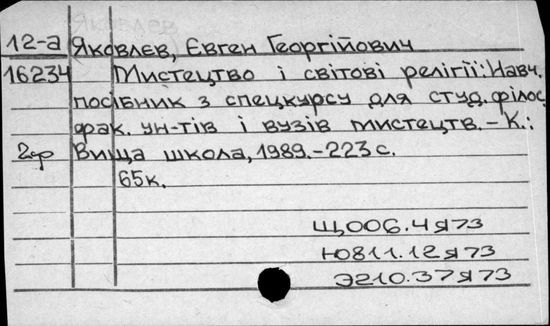 Яковлев
12-а Яковлєв, Євген Георгійович
16234 Мистецтво і світові релігії: Навч.
посібник з спецкурсу для студ. філос.
фак. ун-тів і вузів мистецтв. – К.:
2ф Вища школа, 1989. – 223 с.
65к.
Щ006.4я73
Ю811.12я73
Э210.37я73